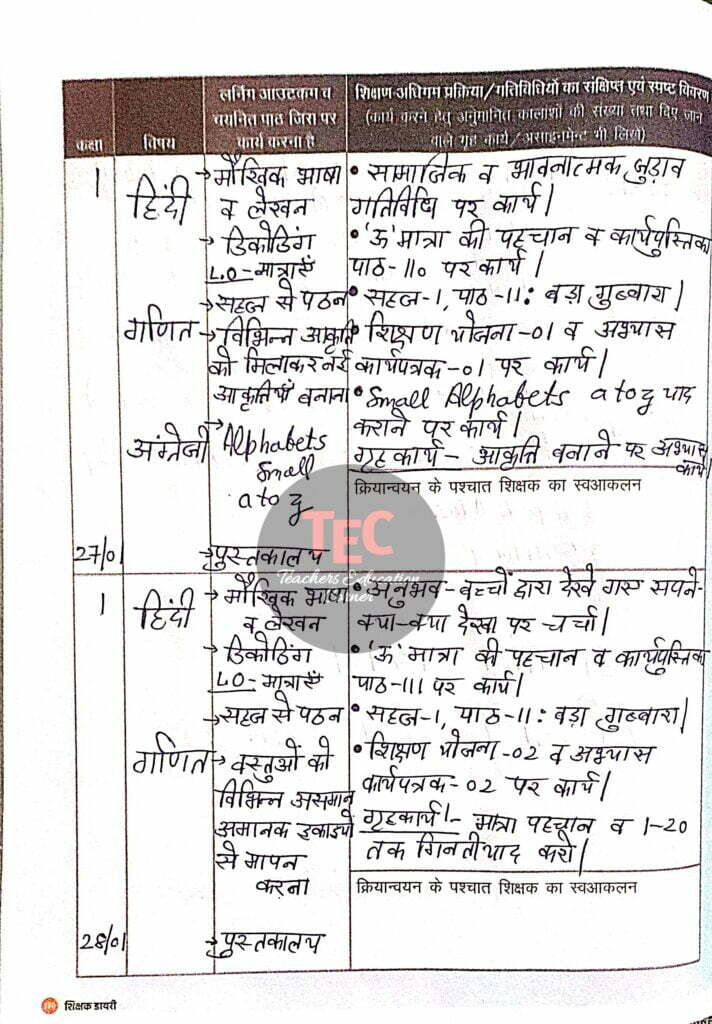 कक्षा
विषय
लर्निंग आउटकम व
चयनित पाठ जिस पर
कार्य करना है
शिक्षण अधिगम प्रक्रिया/गतिविधियों का संक्षिप्त एवं स्पष्ट विवरण
(कार्य करने हेतु अनुमानित कालांशों की संख्या तथा दिए जाने
वाले गृह कार्य/असाइनमेन्ट भी लिखें)
1
हिंदी
→ मौखिक भाषा
व लेखन
→ डिकोडिंग
L.O - मात्राएँ
→ सहज से पठन
• सामाजिक व भावनात्मक जुड़ाव
गतिविधि पर कार्य।
• 'ऊ' मात्रा की पहचान व कार्यपुस्तिका
पाठ-110 पर कार्य।
• सहज-1, पाठ-11: बड़ा गुब्बारा।
गणित
→ विभिन्न आकृति
को मिलाकर नई
आकृतियाँ बनाना
• शिक्षण योजना-01 व अभ्यास
कार्यपत्रक-01 पर कार्य।
अंग्रेजी
→ Alphabets
Small
a to z
• Small Alphabets a to z याद
कराने पर कार्य।
गृहकार्य - आकृति बनाने पर अभ्यास
कार्य।
क्रियान्वयन के पश्चात शिक्षक का स्वआकलन
27/01
→ पुस्तकालय
TEC
Teachers Education
1
हिंदी
→ मौखिक भाषा
व लेखन
→ डिकोडिंग
LO - मात्राएँ
→ सहज से पठन
• अनुभव - बच्चों द्वारा देखे गए सपने-
क्या-क्या देखा पर चर्चा।
• 'ऊ' मात्रा की पहचान व कार्यपुस्तिका
पाठ-111 पर कार्य।
• सहज-1, पाठ-11: बड़ा गुब्बारा।
गणित
→ वस्तुओं को
विभिन्न असमान
अमानक इकाइयों
से मापन
करना
• शिक्षण योजना-02 व अभ्यास
कार्यपत्रक-02 पर कार्य।
गृहकार्य - मात्रा पहचान व 1-20
तक गिनती याद करो।
क्रियान्वयन के पश्चात शिक्षक का स्वआकलन
28/01
→ पुस्तकालय
शिक्षक डायरी